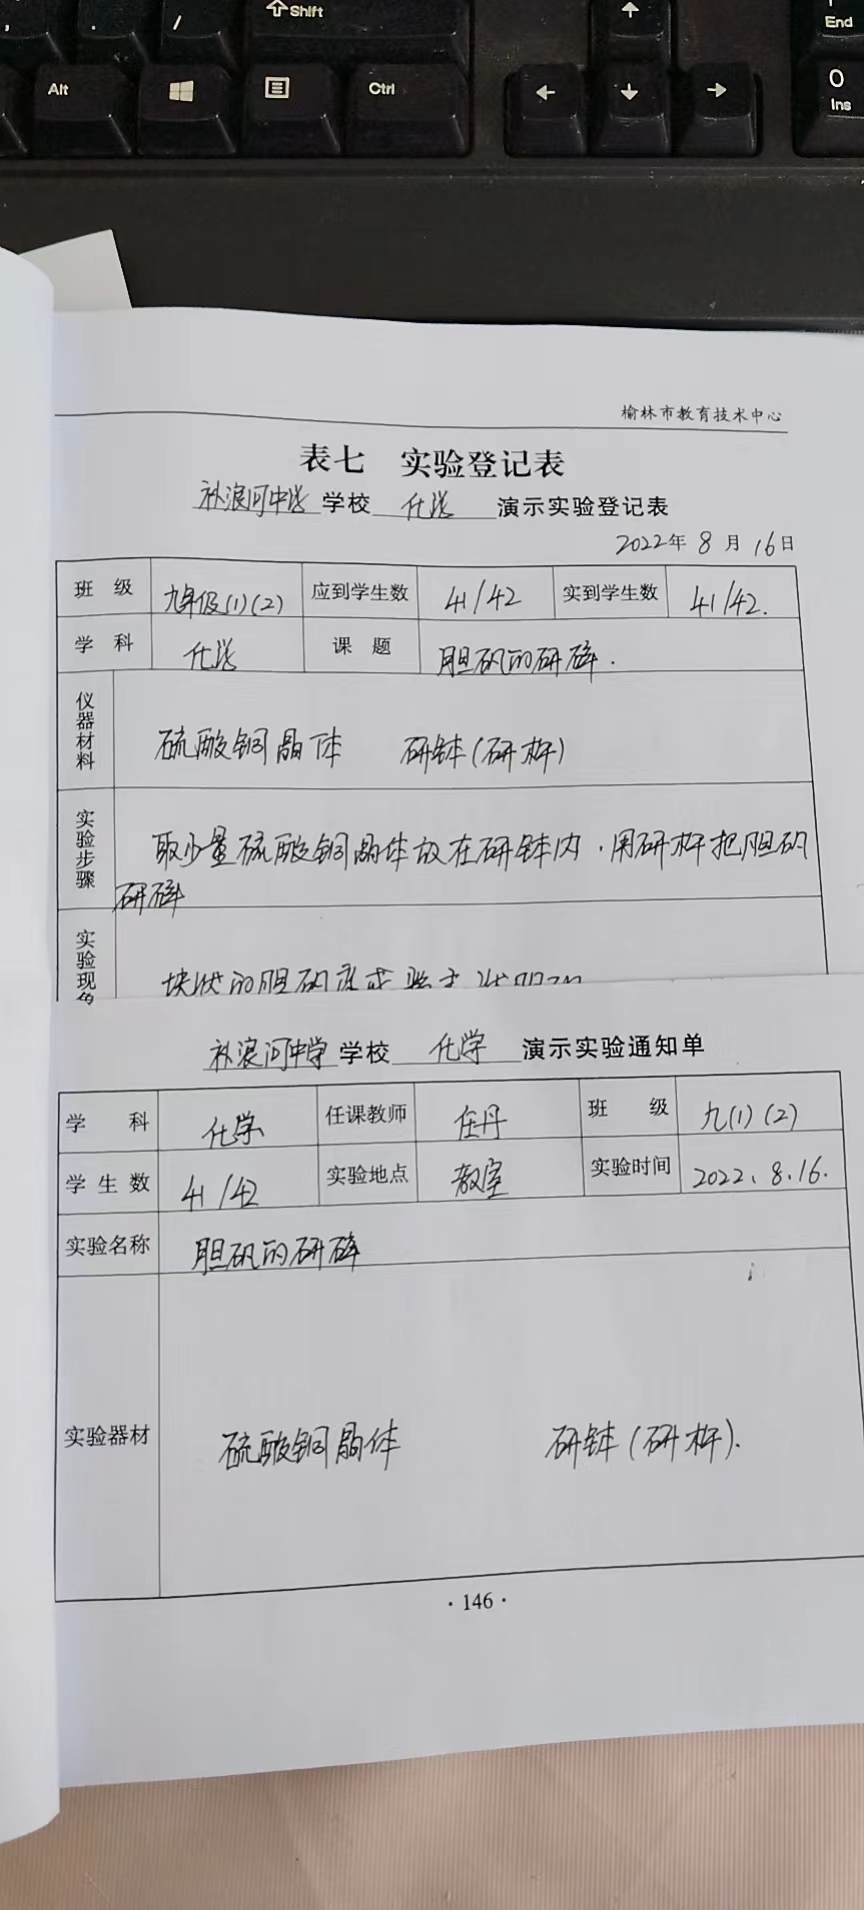 Shift
End
Alt
Ctrl
0
Ins
榆林市教育技术中心
表七 实验登记表
补浪河中学 学校 化学 演示实验登记表
2022年 8 月 16日
班 级 九年级(1)(2) 应到学生数 41/42 实到学生数 41/42.
学 科 化学 课 题 胆矾的研碎.
仪器材料 硫酸铜晶体 研钵(研杵)
实验步骤 取少量硫酸铜晶体放在研钵内,用研杵把胆矾
研碎
实验现象 块状的胆矾
补浪河中学 学校 化学 演示实验通知单
学 科 化学 任课教师 任丹 班 级 九(1)(2)
学 生 数 41/42 实验地点 教室 实验时间 2022.8.16.
实验名称 胆矾的研碎
实验器材 硫酸铜晶体 研钵(研杵).
·146·